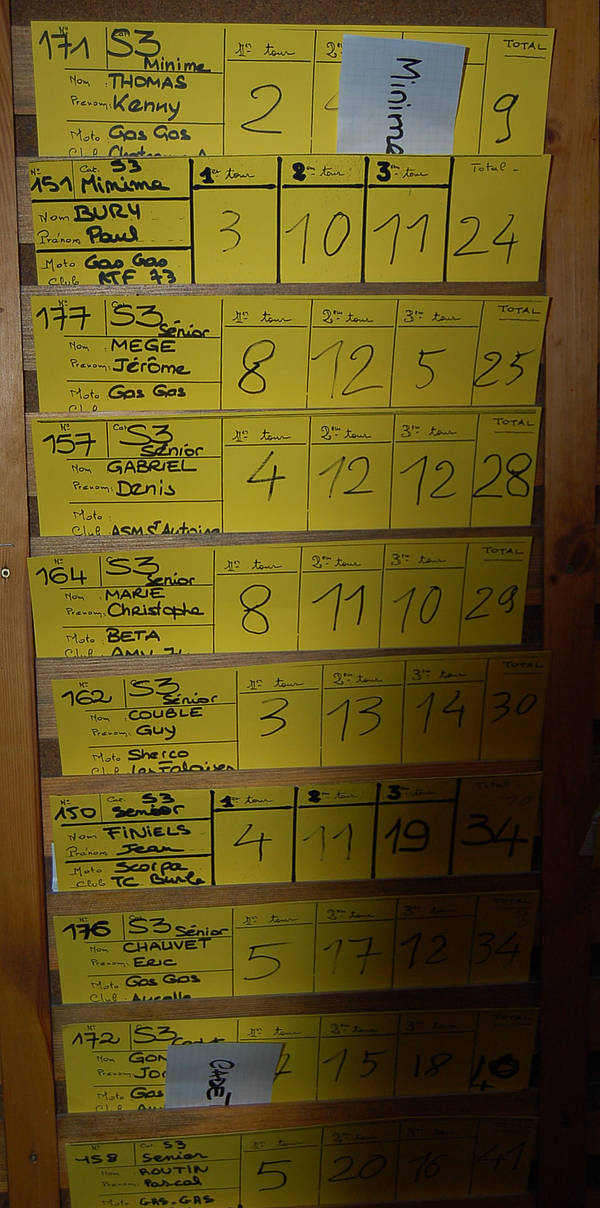 N° 171 S3 Minime 1er tour 2 TOTAL
Nom : THOMAS
Prenom: Kenny 2 9
Moto : Gas Gas
Club
Minime
N° 151 Cat. S3 Minime 1er tour 2em tour 3em tour Total
Nom BURY
Prénom Paul 3 10 11 24
Moto Gas Gas
Club RTF 73
N° 177 S3 Sénior 1er tour 2em tour 3em tour TOTAL
Nom : MEGE
Prenom: Jérôme 8 12 5 25
Moto : Gas Gas
N° 157 Cat S3 Sénior 1er tour 2em tour 3em tour TOTAL
Nom GABRIEL
Prenom: Denis 4 12 12 28
Moto :
Club ASM St Antoine
N° 164 S3 Senior 1er tour 2em tour 3em tour TOTAL
Nom : MARIE
Prenom: Christophe 8 11 10 29
Moto : BETA
Club
N° 162 S3 Sénior 1er tour 2em tour 3em tour TOTAL
Nom : COUBLE
Prenom: Guy 3 13 14 30
Moto Sherco
Club Les Falaises
N° 150 Cat. S3 Senior 1er tour 2em tour 3em tour Total
Nom FINIELS
Prénom Jean 4 11 19 34
Moto Scorpa
Club TC Burle
N° 176 S3 Sénior 1er tour 2em tour 3em tour TOTAL
Nom : CHAUVET
Prenom: ERIC 5 17 12 34
Moto : Gas Gas
Club
N° 172 S3 1er tour 2em tour 3em tour TOTAL
Nom GON
Prenom: 15 18 40
Moto : Gas
CADET
N° 158 Cat. S3 Senior 1er tour 2em tour 3em tour TOTAL
Nom : ROUTIN
Prenom: Pascal 5 20 16 41
Moto : GAS-GAS